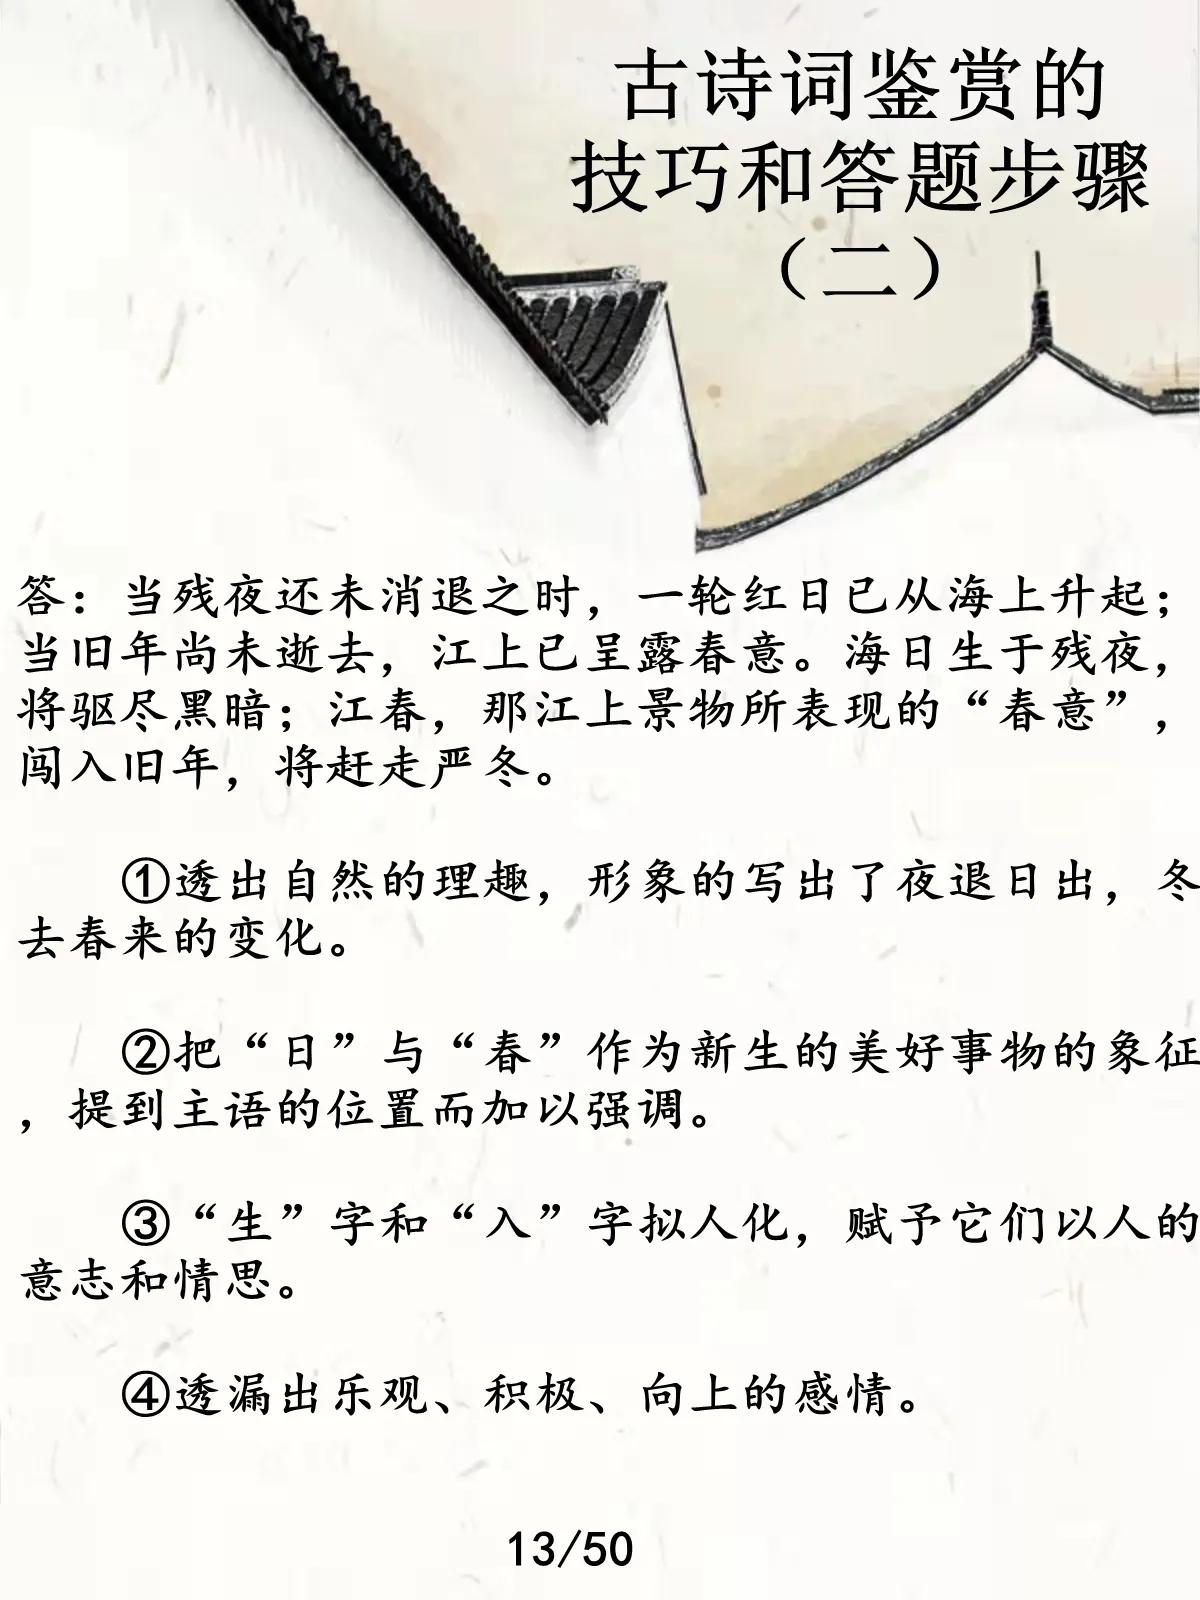 古诗词鉴赏的
技巧和答题步骤
（二）
答：当残夜还未消退之时，一轮红日已从海上升起；
当旧年尚未逝去，江上已呈露春意。海日生于残夜，
将驱尽黑暗；江春，那江上景物所表现的“春意”，
闯入旧年，将赶走严冬。
①透出自然的理趣，形象的写出了夜退日出，冬
去春来的变化。
②把“日”与“春”作为新生的美好事物的象征
，提到主语的位置而加以强调。
③“生”字和“入”字拟人化，赋予它们以人的
意志和情思。
④透漏出乐观、积极、向上的感情。
13/50